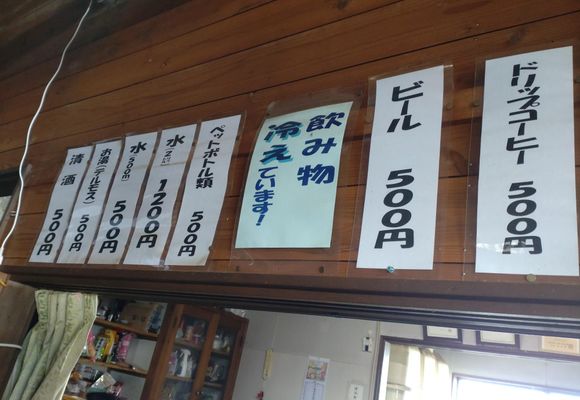 ドリップコーヒー 500円
ビール 500円
飲み物
冷えています!
ペットボトル類 500円
水(2L) 1200円
水(500m) 500円
お湯(テルモス) 500円
清酒 500円